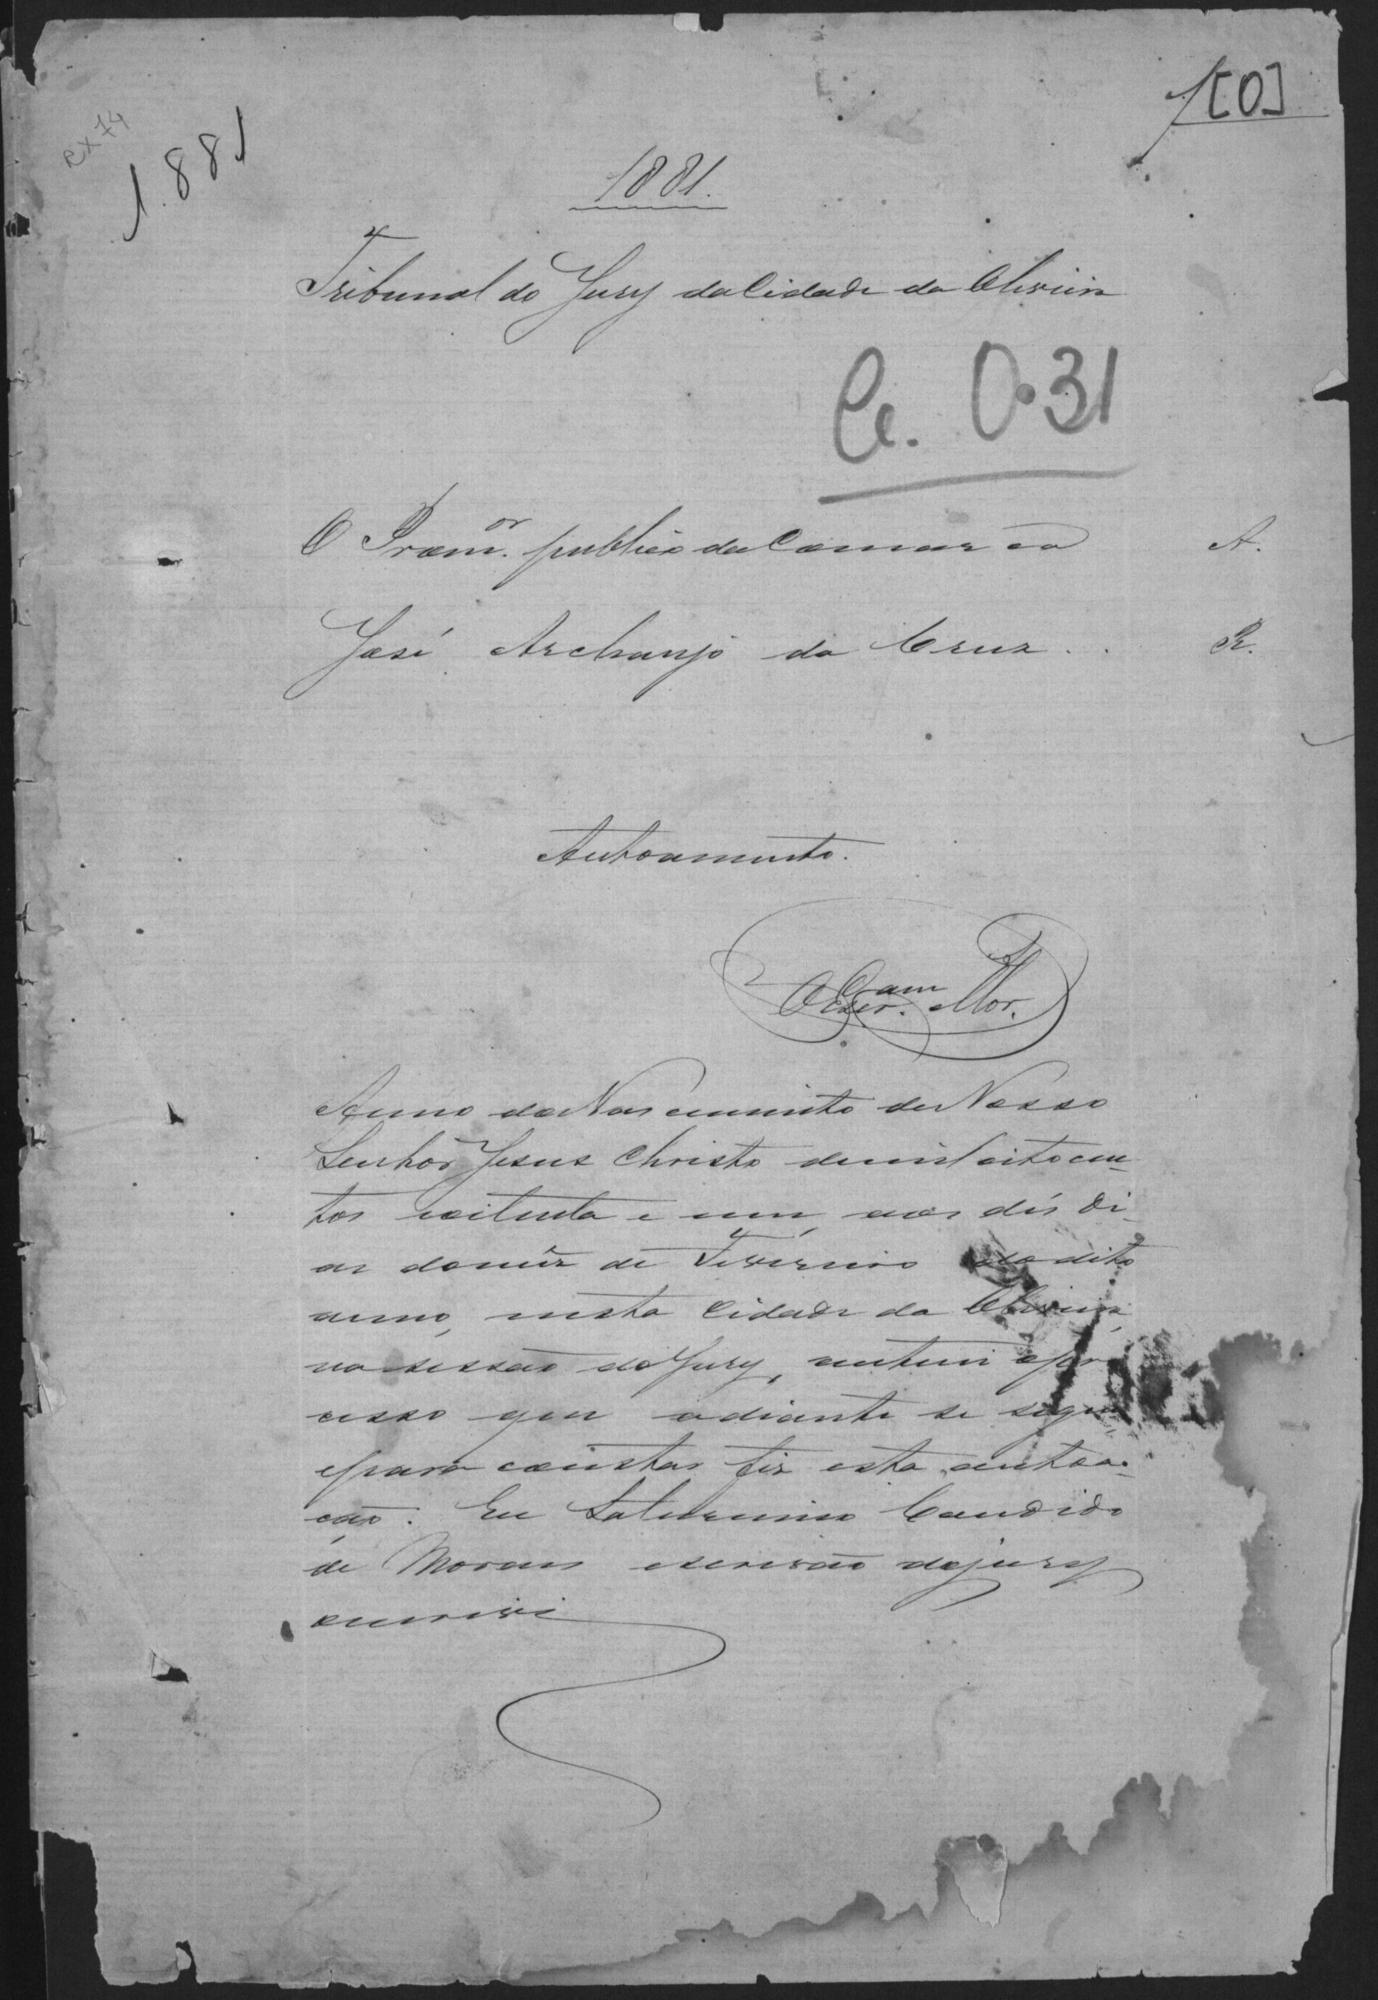 1[0]
RX74
1.881
1881.
Tribunal do Jury da Cidade da Oliveira
Cx. 0.31
O Prom.or publico da Comarca A.
José Archanjo da Cruz . . R.
Autoamento.
O Escr. Mor.
Anno do Nascimento de Nosso
Senhor Jesus Christo de mil oitocen-
tos e oitenta e um, aos dés di-
as do mêz de Fevereiro do dito
anno, nesta Cidade da Oliveira,
na sessão do Jury, autuei o pro-
cesso que adiante se segue,
e para constar fiz esta autoa-
ção. Eu Saturnino Candido
de Moraes escrivão do jury
escrevi